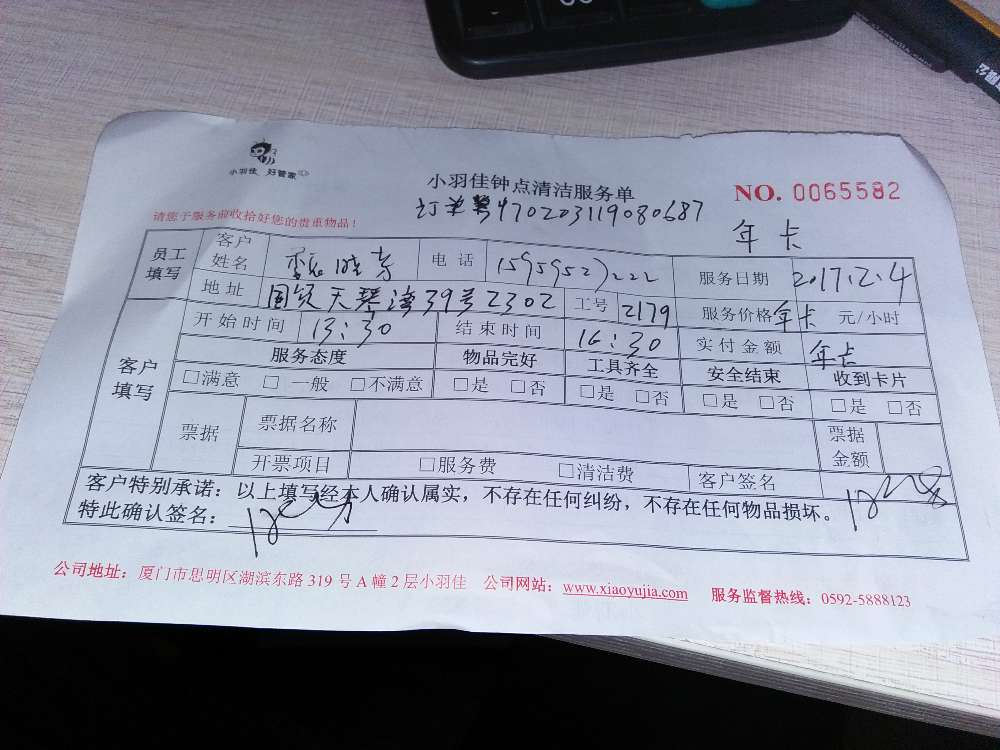 小羽佳 好管家
小羽佳钟点清洁服务单
NO. 0065582
订单号470203119080687
请您于服务前收拾好您的贵重物品！
年卡
员工填写
客户姓名 晓芳 电话 15959527222 服务日期 2017.2.4
地址 国贸天琴湾39号2302 工号 2179 服务价格 年卡 元/小时
开始时间 13:30 结束时间 16:30 实付金额 年卡
客户填写
服务态度 物品完好 工具齐全 安全结束 收到卡片
□满意 □一般 □不满意 □是 □否 □是 □否 □是 □否 □是 □否
票据 票据名称 票据金额
开票项目 □服务费 □清洁费 客户签名
客户特别承诺：以上填写经本人确认属实，不存在任何纠纷，不存在任何物品损坏。
特此确认签名：
公司地址：厦门市思明区湖滨东路 319 号 A 幢 2 层小羽佳 公司网站：www.xiaoyujia.com 服务监督热线：0592-5888123